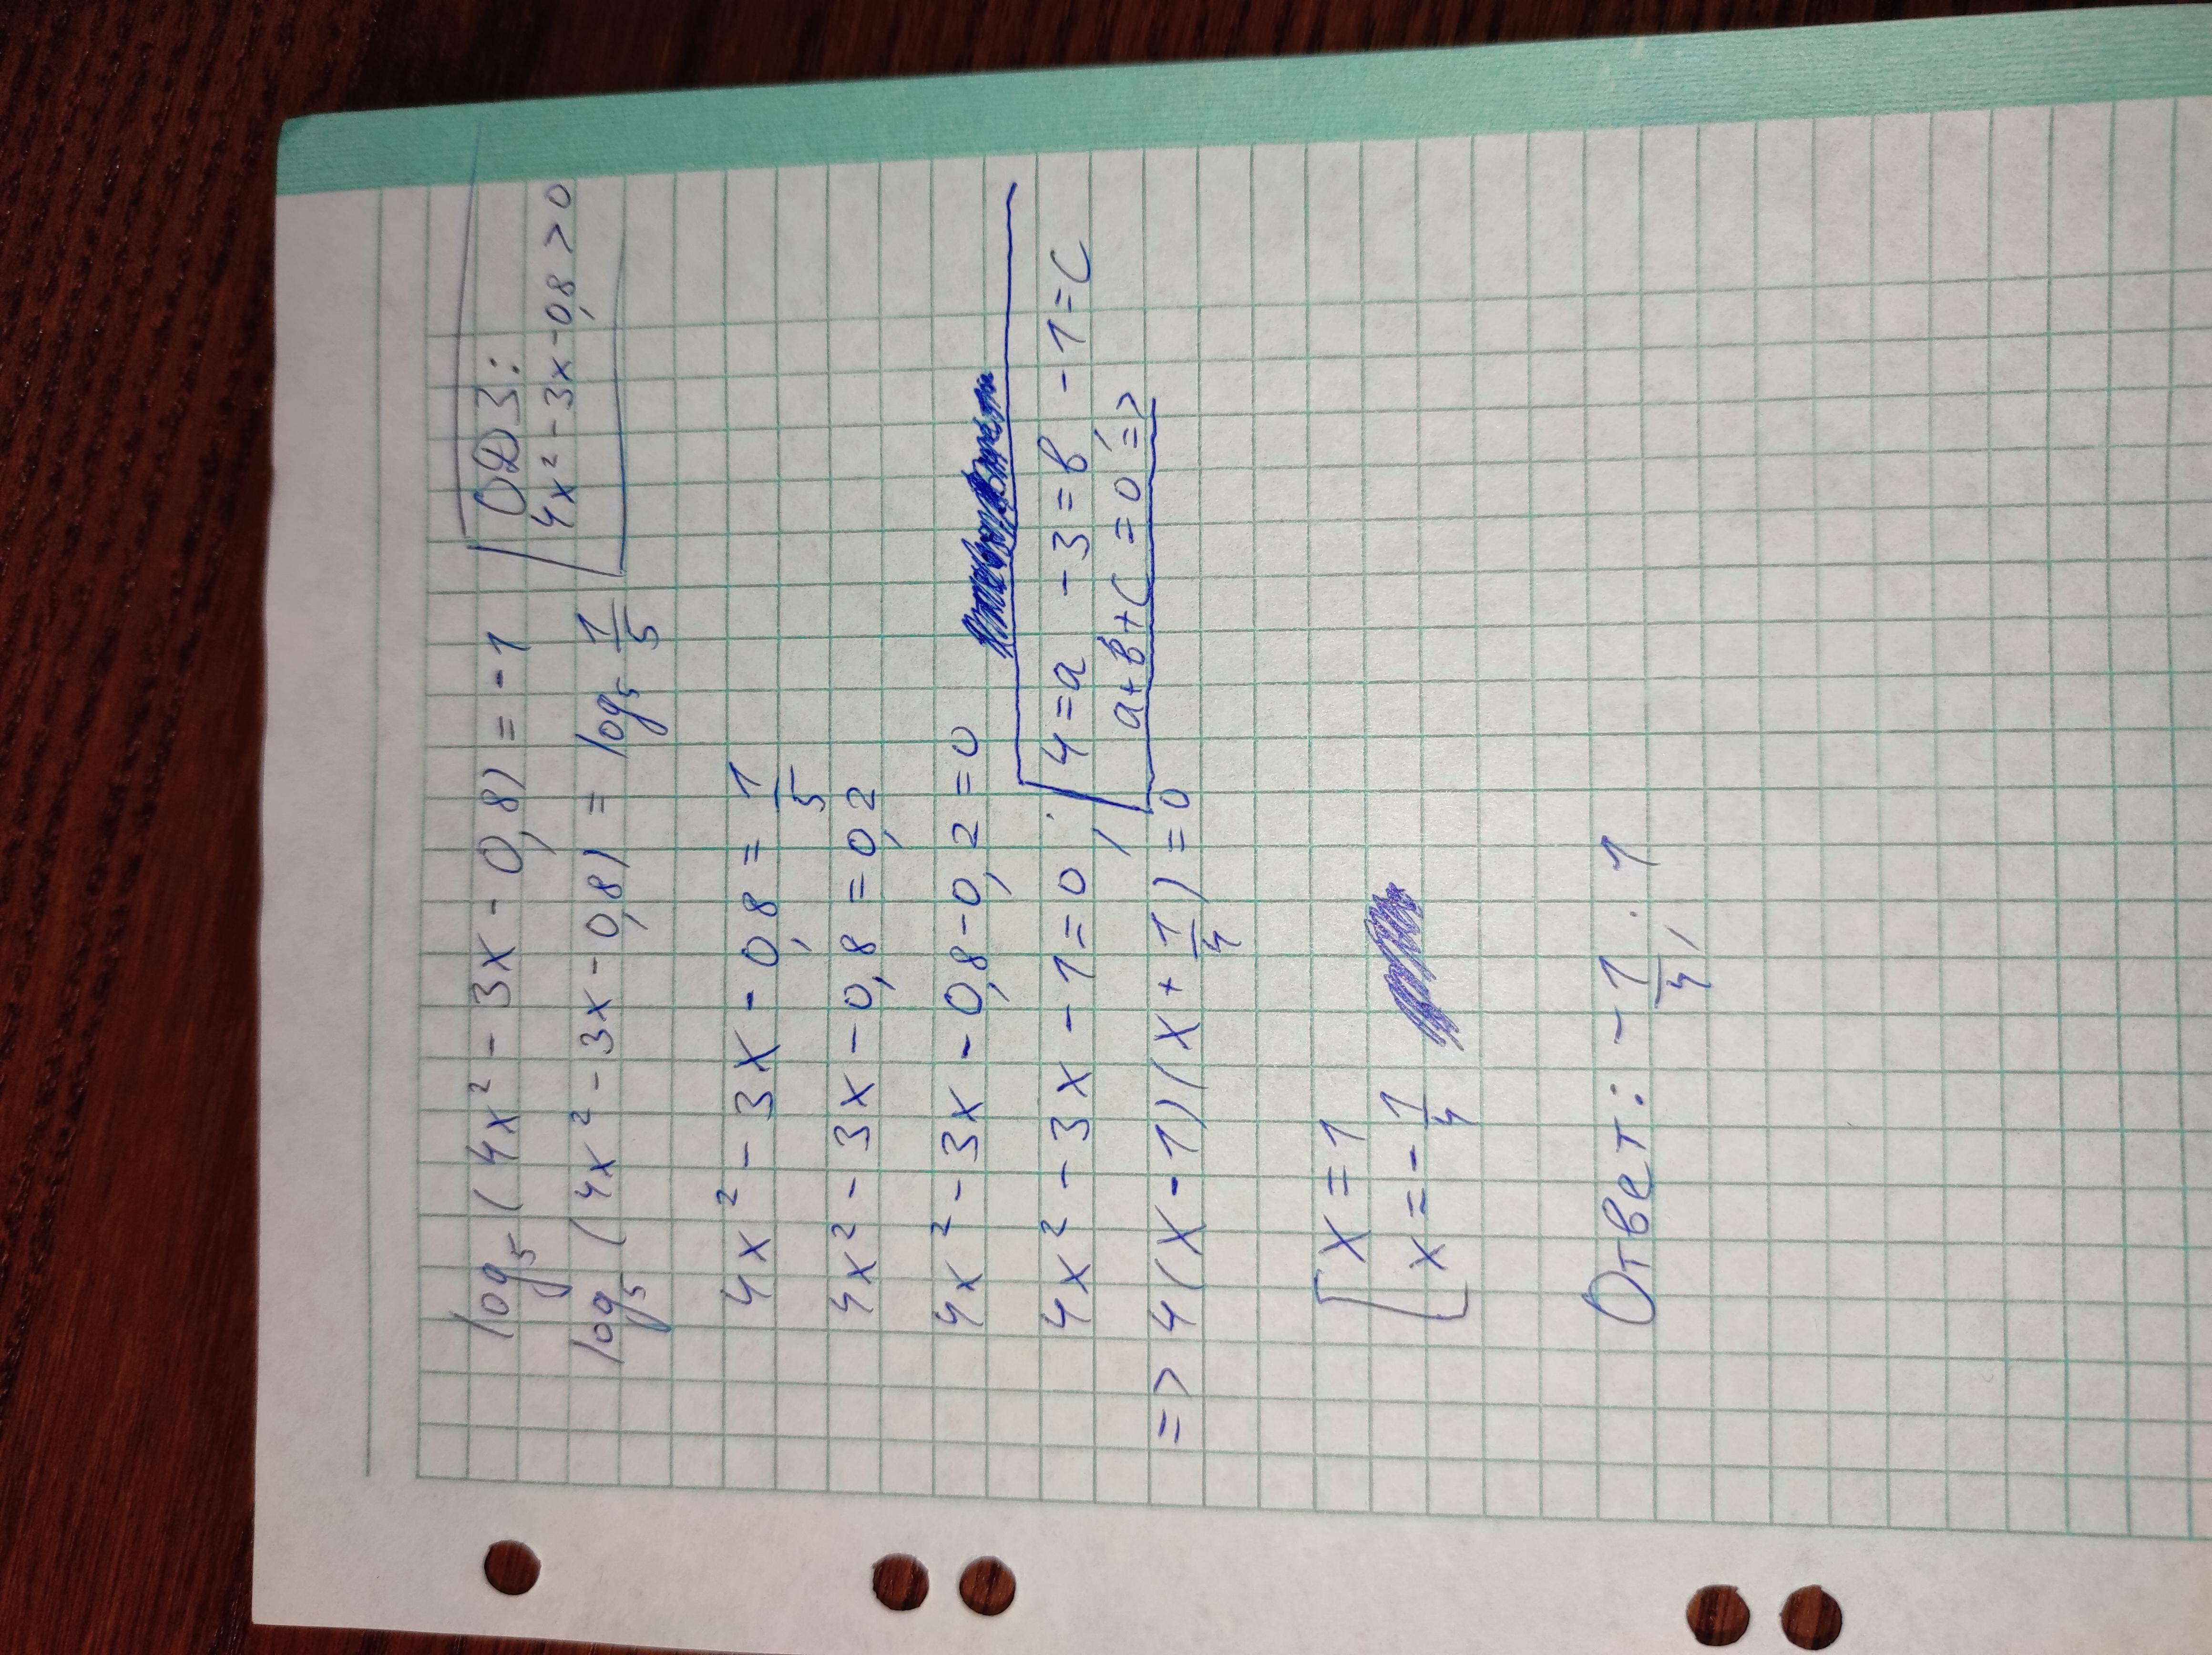 log₅(4x² - 3x - 0,8) = -1
ОДЗ:
4x² - 3x - 0,8 > 0
log₅(4x² - 3x - 0,8) = log₅ 1/5
4x² - 3x - 0,8 = 1/5
4x² - 3x - 0,8 = 0,2
4x² - 3x - 0,8 - 0,2 = 0
4x² - 3x - 1 = 0;
4 = a -3 = в -1 = c
a + в + c = 0 =>
=> 4(x - 1)(x + 1/4) = 0
[x = 1
[x = - 1/4
Ответ: - 1/4; 1